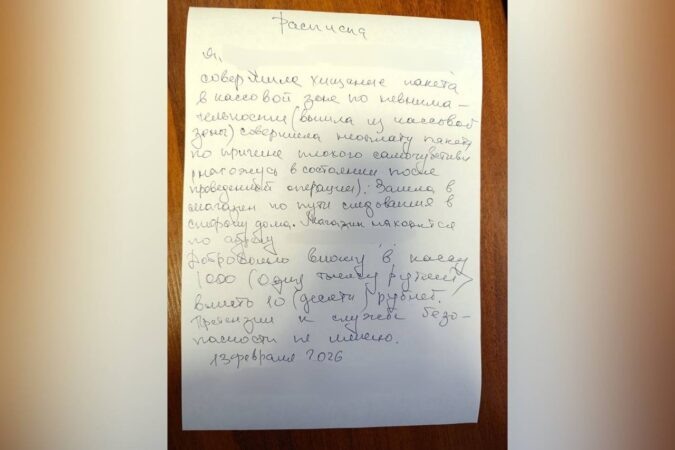 Расписка
Я,
совершила хищание пакета
в кассовой зоне по невнима-
тельности (вышла из кассовой
зоны) совершила неоплату пакета
по причине плохого самочувствия
(нахожусь в состоянии после
проведенной операции). Зашла в
магазин по пути следования в
сторону дома. Магазин находится
по адресу
Добровольно вношу в кассу
1000 (одну тысячу рублей)
вместо 10 (десяти) рублей.
Претензии к службе безо-
пасности не имею.
13 февраля 2026